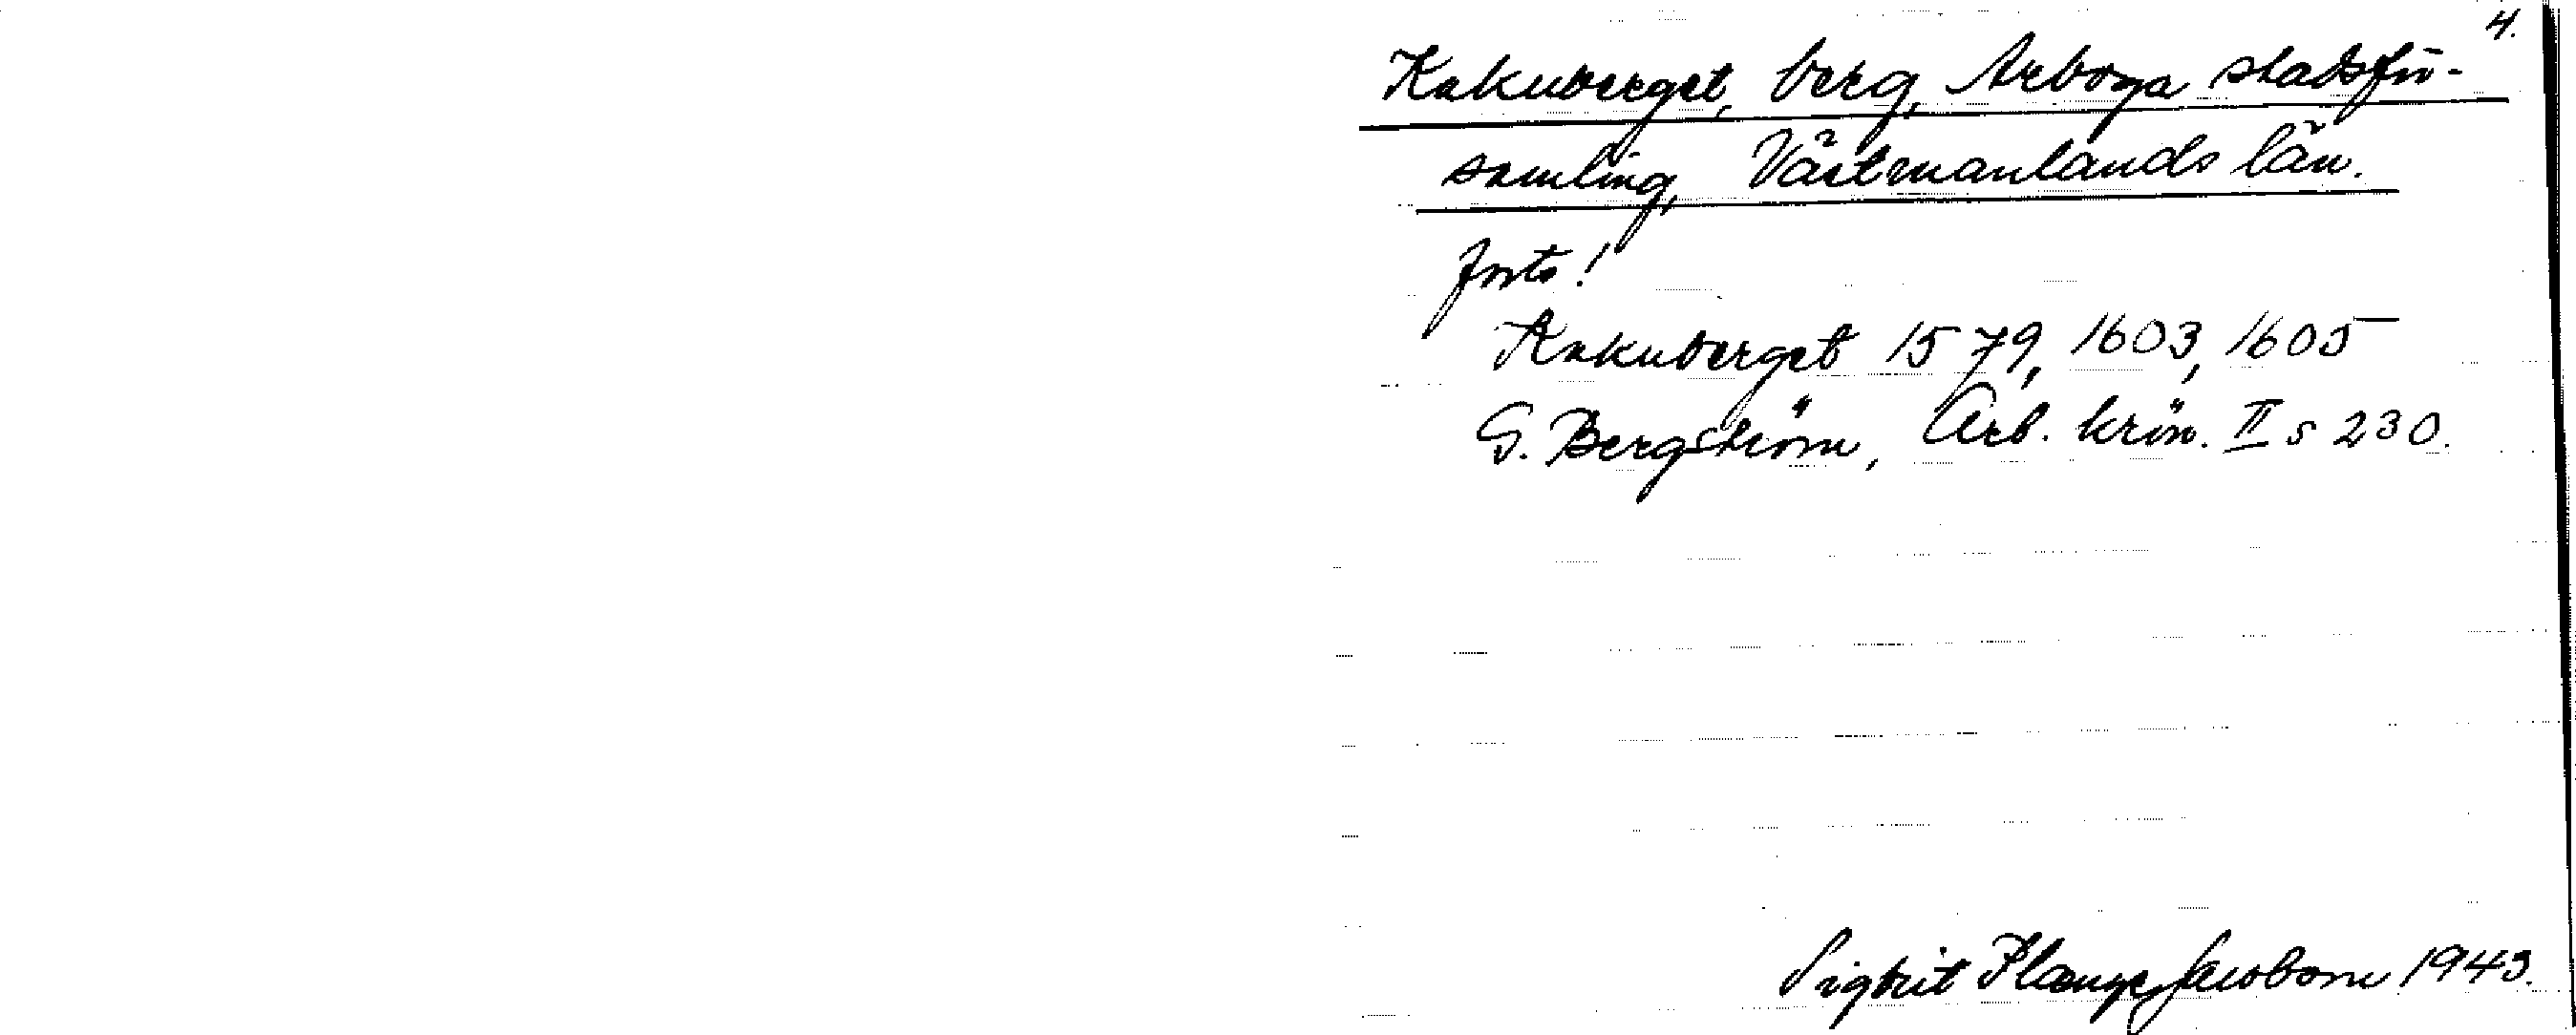 4.
Kakuberget, berg, Arboga stadsför-
samling, Västmanlands län.
forts!
Kakuberget 1579, 1603, 1605
G. Bergström, Arb. krön. II s 230.
Sigbrit Plænge Jacobson 1943.